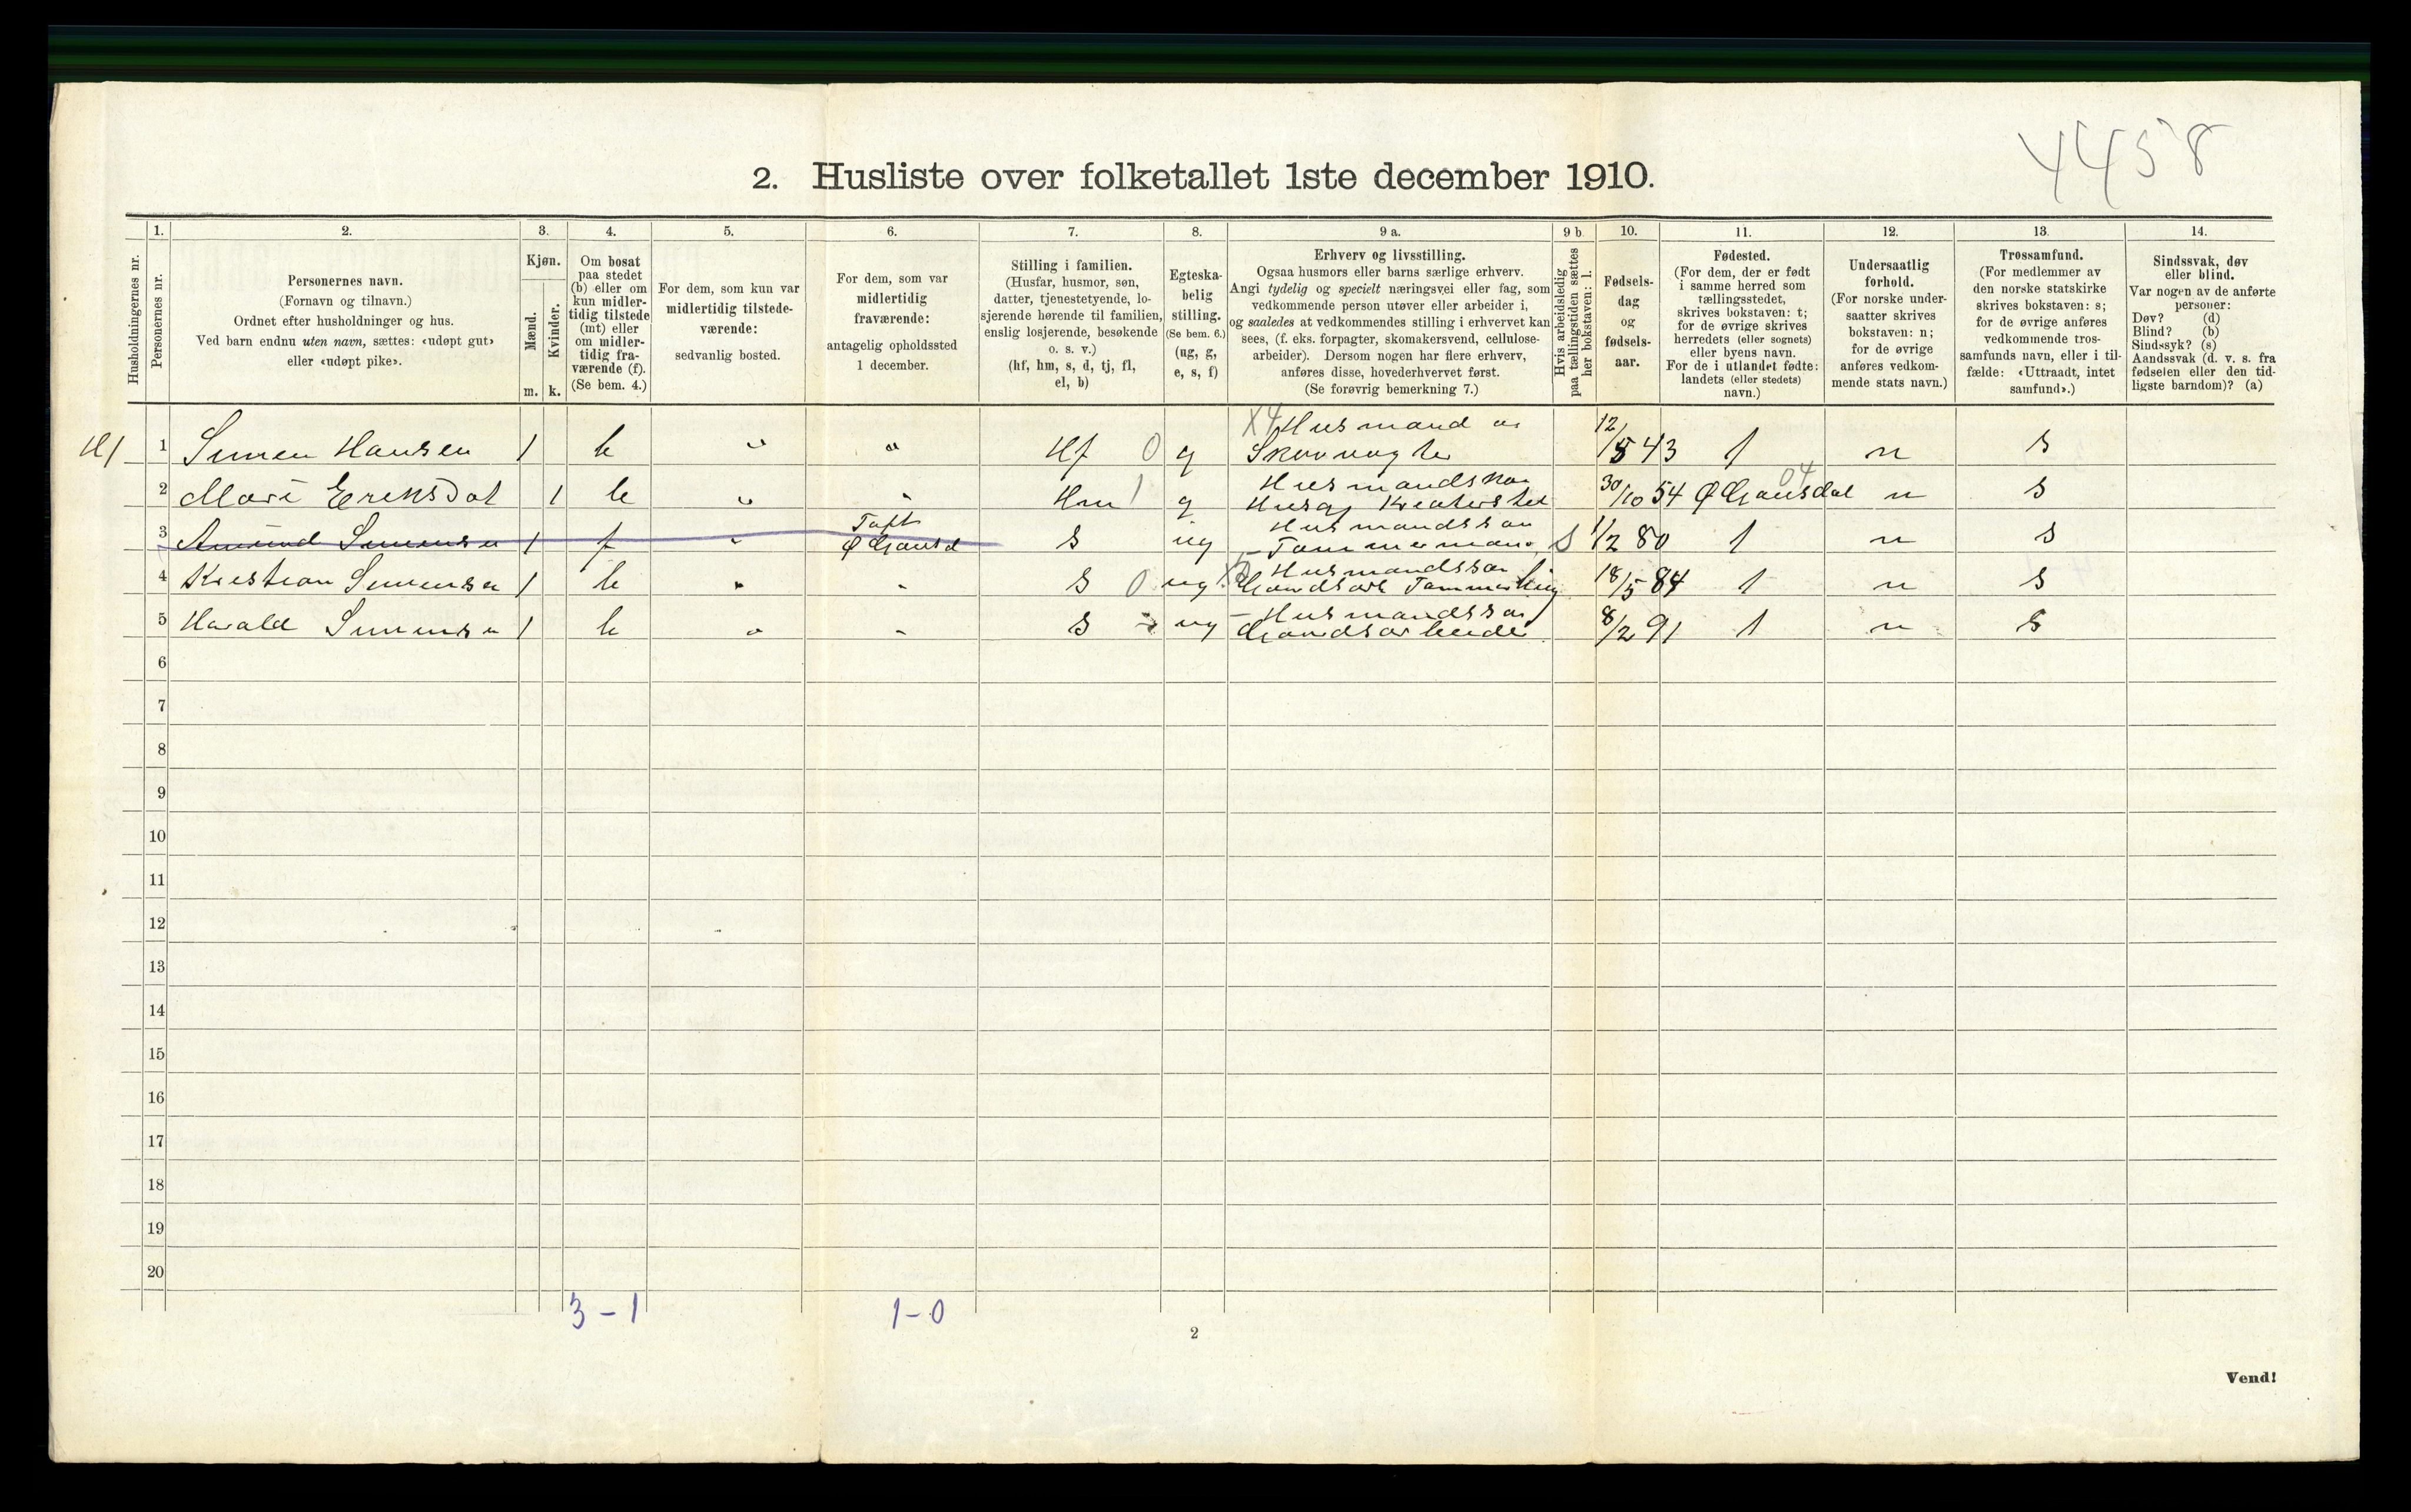 4458
2. Husliste over folketallet 1ste december 1910.
Husholdningernes nr.
1.
Personernes nr.
2.
Personernes navn.
(Fornavn og tilnavn.)
Ordnet efter husholdninger og hus.
Ved barn endnu uten navn, sættes: «udøpt gut»
eller «udøpt pike».
3.
Kjøn.
Mænd.
Kvinder.
m. k.
4.
Om bosat
paa stedet
(b) eller om
kun midler-
tidig tilstede
(mt) eller
om midler-
tidig fra-
værende (f).
(Se bem. 4.)
5.
For dem, som kun var
midlertidig tilstede-
værende:
sedvanlig bosted.
6.
For dem, som var
midlertidig
fraværende:
antagelig opholdssted
1 december.
7.
Stilling i familien.
(Husfar, husmor, søn,
datter, tjenestetyende, lo-
sjerende hørende til familien,
enslig losjerende, besøkende
o. s. v.)
(hf, hm, s, d, tj, fl,
el, b)
8.
Egteska-
belig
stilling.
(Se bem. 6.)
(ug, g,
e, s, f)
9 a.
Erhverv og livsstilling.
Ogsaa husmors eller barns særlige erhverv.
Angi tydelig og specielt næringsvei eller fag, som
vedkommende person utøver eller arbeider i,
og saaledes at vedkommendes stilling i erhvervet kan
sees, (f. eks. forpagter, skomakersvend, cellulose-
arbeider). Dersom nogen har flere erhverv,
anføres disse, hovederhvervet først.
(Se forøvrig bemerkning 7.)
9 b.
Hvis arbeidsledig
paa tællingstiden sættes
her bokstaven: l.
10.
Fødsels-
dag
og
fødsels-
aar.
11.
Fødested.
(For dem, der er født
i samme herred som
tællingsstedet,
skrives bokstaven: t;
for de øvrige skrives
herredets (eller sognets)
eller byens navn.
For de i utlandet fødte:
landets (eller stedets)
navn.)
12.
Undersaatlig
forhold.
(For norske under-
saatter skrives
bokstaven: n;
for de øvrige
anføres vedkom-
mende stats navn.)
13.
Trossamfund.
(For medlemmer av
den norske statskirke
skrives bokstaven: s;
for de øvrige anføres
vedkommende tros-
samfunds navn, eller i til-
fælde: «Uttraadt, intet
samfund».)
14.
Sindssvak, døv
eller blind.
Var nogen av de anførte
personer:
Døv? (d)
Blind? (b)
Sindssyk? (s)
Aandssvak (d. v. s. fra
fødselen eller den tid-
ligste barndom)? (a)
X4 Husmand og
H1 1 Simen Hansen 1 b " " Hf 0 g Skovvogter 12/5 43 t n s
Husmandskone
2 Mari Eriksdat 1 b " " Hm 1 g Husg Kreaturstel 30/10 54 Ø Gausdal 04 n s
Toft Husmandssøn
3 Amund Simensen 1 f " Ø Gausd s ug Tømmermand 1/2 80 t n s
Husmandssøn
4 Kristian Simensen 1 b " " s 0 ug Gaardsarb Tømmerhug 18/5 84 t n s
Husmandssøn
5 Harald Simensen 1 b " " s ug Gaardsarbeide 8/2 91 t n s
6
7
8
9
10
11
12
13
14
15
16
17
18
19
20
3-1 1-0
2
Vend!